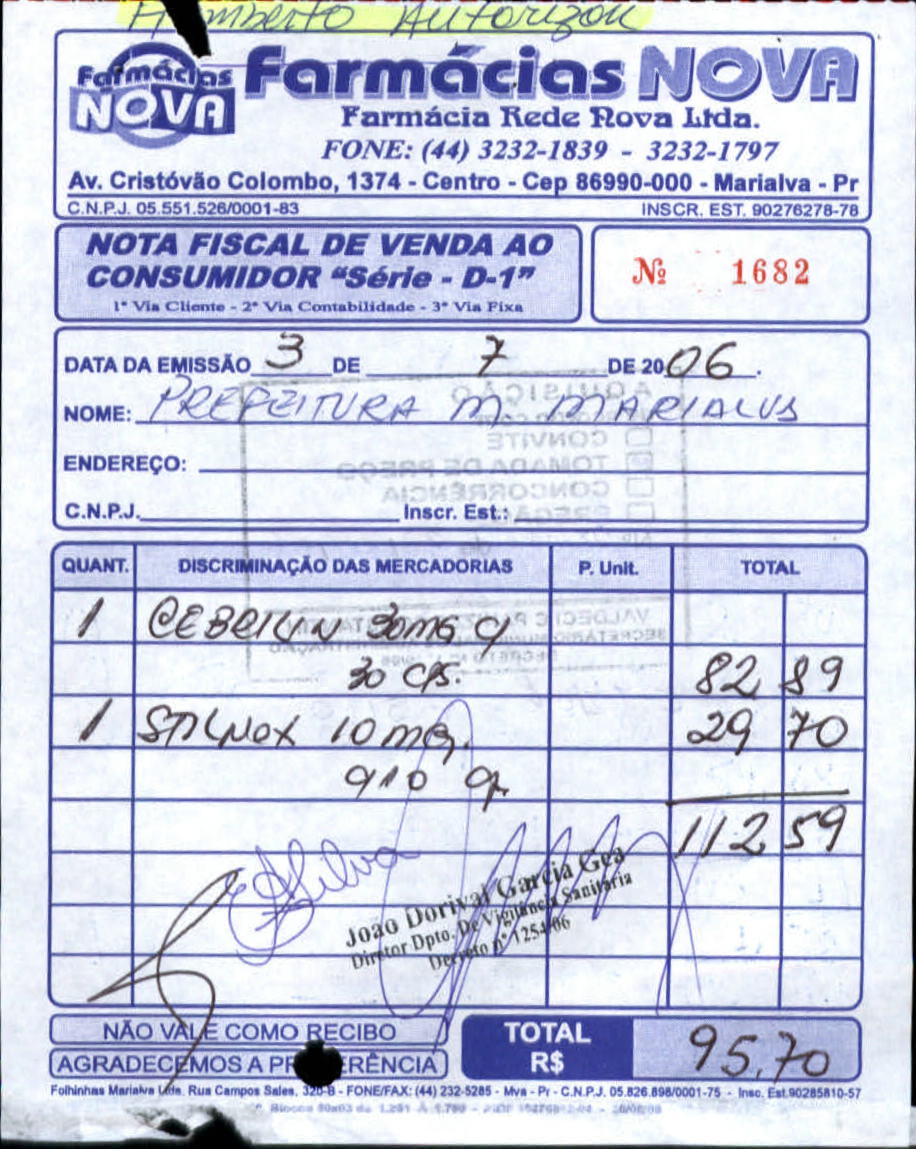 Humberto Autorizou
Farmácias NOVA
Farmácias NOVA
Farmácia Rede Nova Ltda.
FONE: (44) 3232-1839 - 3232-1797
Av. Cristóvão Colombo, 1374 - Centro - Cep 86990-000 - Marialva - Pr
C.N.P.J. 05.551.526/0001-83 INSCR. EST. 90276278-78
NOTA FISCAL DE VENDA AO
CONSUMIDOR "Série - D-1"
1ª Via Cliente - 2ª Via Contabilidade - 3ª Via Fixa
Nº 1682
DATA DA EMISSÃO 3 DE 7 DE 2006.
NOME: PREFEITURA M. MARIALVA
ENDEREÇO:
C.N.P.J. Inscr. Est.:
AQUISIÇÃO
CONVITE
TOMADA DE PREÇO
CONCORRÊNCIA
PREGÃO
QUANT. DISCRIMINAÇÃO DAS MERCADORIAS P. Unit. TOTAL
1 30mg c/
30 cps. 82 89
1 STILNOX 10 mg. 29 70
112 59
Silva
João Dorival Garcia Gea
Diretor Dpto. De Vigilância Sanitária
Decreto nº 1254/06
NÃO VALE COMO RECIBO
AGRADECEMOS A PREFERÊNCIA
TOTAL
R$ 95,70
Folhinhas Marialva Ltda. Rua Campos Sales, 320-B - FONE/FAX: (44) 232-5285 - Mva - Pr - C.N.P.J. 05.826.898/0001-75 - Insc. Est.90285810-57